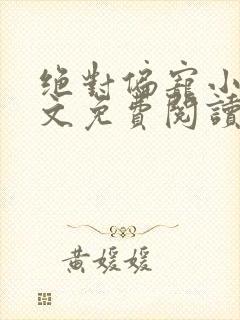 絕對偏寵小
文免費閱讀
黃媛媛